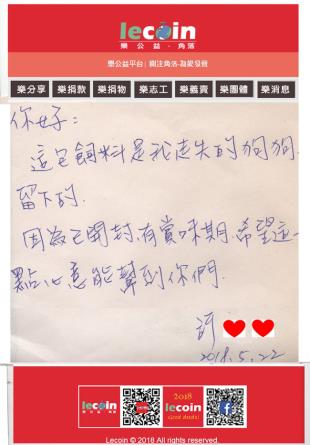 lecoin
樂公益·角落
愚公益平台│關注角落·為愛發聲
樂分享 樂捐款 樂捐物 樂志工 樂義賣 樂團體 樂消息
你好：
這包飼料是我走失的狗狗
留下的.
因為已開封.有賞味期.希望這一
點心意能幫到你們.
許
2018.5.22
lecoin
樂公益·角落
2018
lecoin
Good deeds!
Lecoin © 2018 All rights reserved.